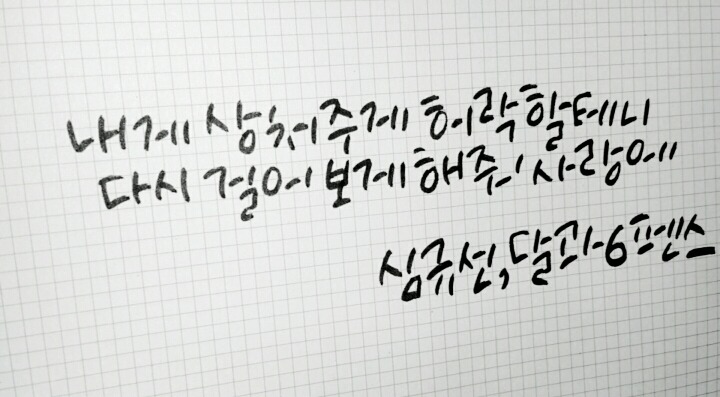 내게 상처 주게 허락할테니
다시 걸어보게 해줘 사랑에
심규선, 달과6펜스